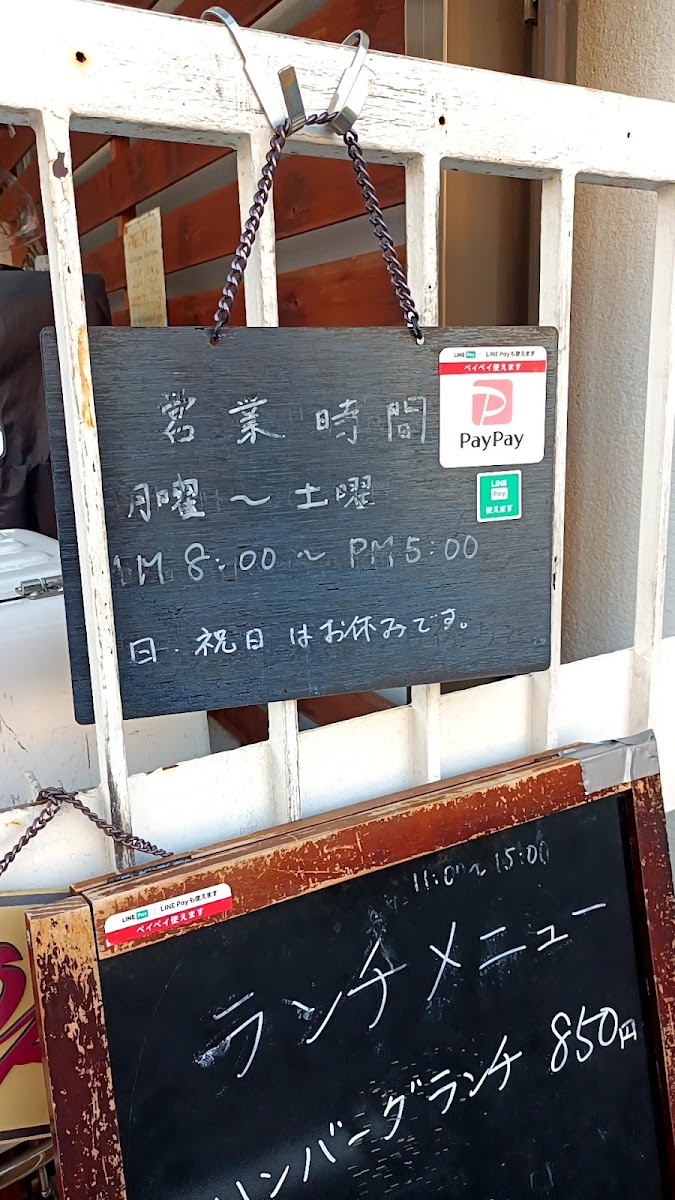 営業時間
月曜～土曜
AM 8:00～PM 5:00
日・祝日はお休みです。
LINE Pay LINE Payも使えます
ペイペイ使えます
PayPay
LINE
Pay
使えます
11:00～15:00
LINE Pay LINE Payも使えます
ペイペイ使えます
ランチメニュー
ハンバーグランチ 850円